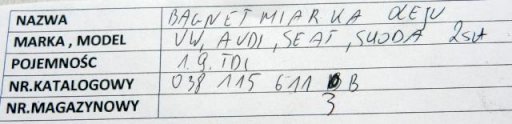 NAZWA BAGNET MIARKA OLEJU
MARKA , MODEL VW, AUDI, SEAT, SKODA 2szt
POJEMNOŚC 1.9. TDI
NR.KATALOGOWY 038 115 611 B
NR.MAGAZYNOWY 3